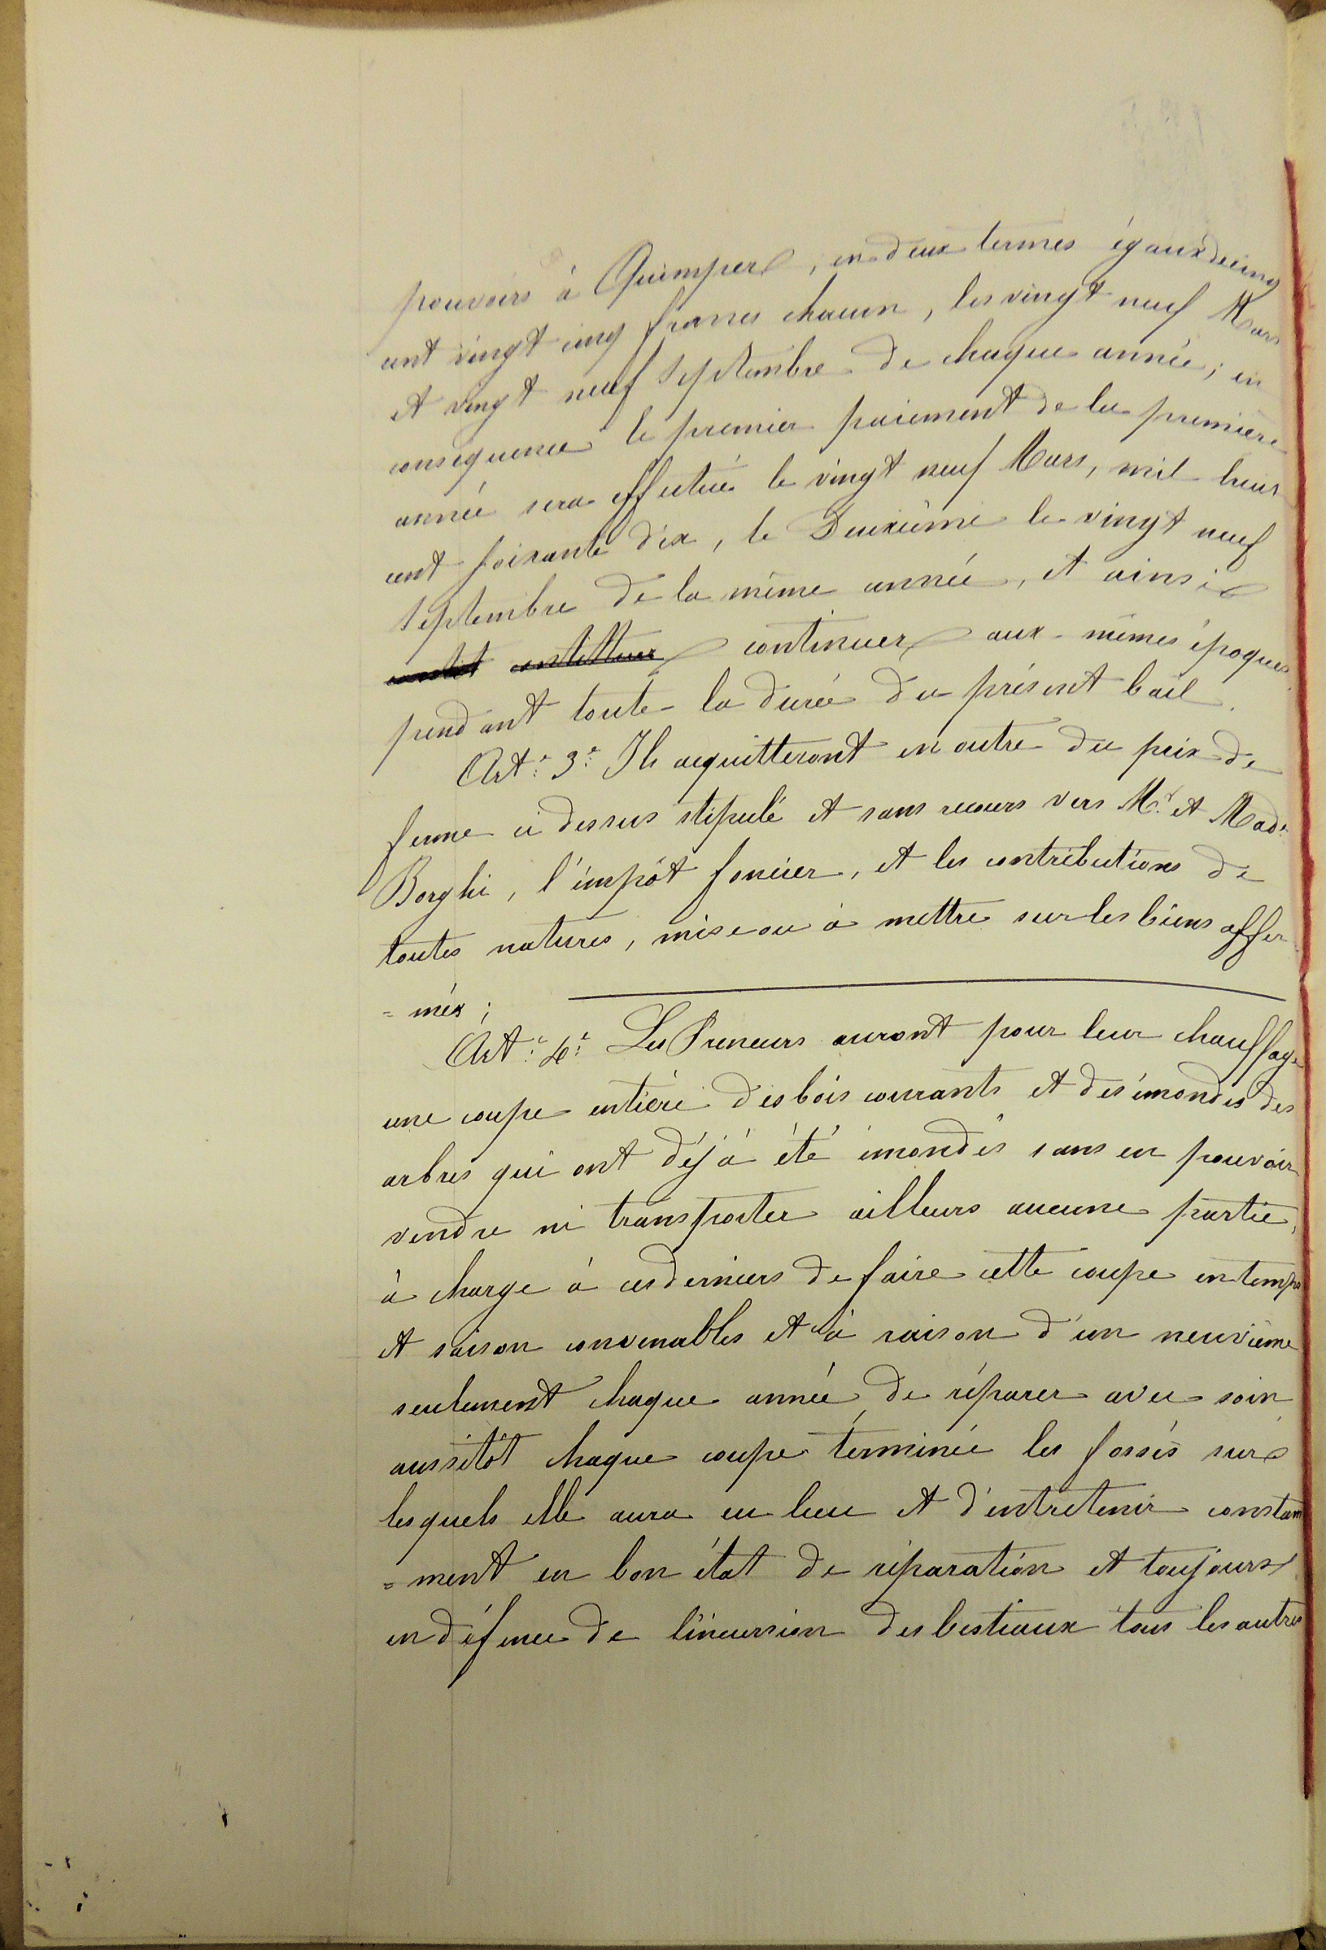 pouvoirs à Quimper, en deux termes égaux de cinq
cent vingt cinq francs chacun, les vingt neuf Mars
et vingt neuf Septembre de chaque année; en
conséquence le premier paiement de la première
année sera effectué le vingt neuf Mars, mil huit
cent soixante dix, le Deuxième le vingt neuf
Septembre de la même année, et ainsi
continuer aux mêmes époques
pendant toute la durée du présent bail.
Art: 3e: Ils acquitteront en outre du prix de
ferme ci dessus stipulé et sans recours vers Mr. et Made
Borghi, l'impôt foncier, et les contributions de
toutes natures, mise ou à mettre sur les biens affer
= més;
Art: 4e: Les Preneurs auront pour leur chauffage
une coupe entière des bois courants et des émondes des
arbres qui ont déjà été émondés sans en pouvoir
vendre ni transporter ailleurs aucune partie,
à charge à ces derniers de faire cette coupe en temps
et saison convenables et à raison d'un neuvième
seulement chaque année, de réparer avec soin
aussitôt chaque coupe terminée les fossés sur
lesquels elle aura eu lieu et d'entretenir constam
= ment en bon état de réparation et toujours
en défence de l'incursion des bestiaux tous les autres